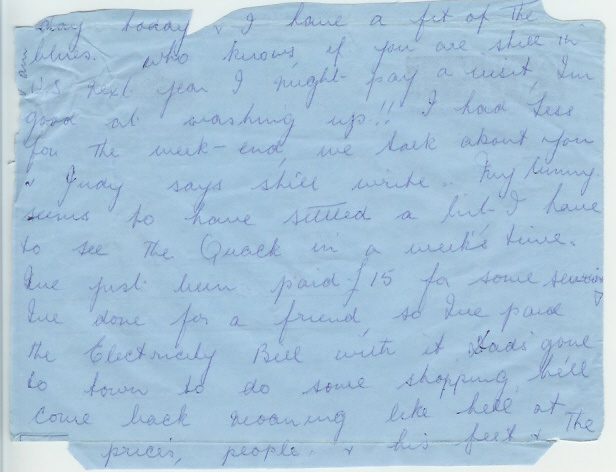 today & I have a fit of the
blues. who knows if you are still in
U.S next year I might pay a visit, I'm
good at washing up!! I had Tess
for the week-end, we talk about you
& Judy says she'll write.. My tummy
seems to have settled a bit I have
to see the Quack in a week's time.
I've just been paid £15 for some sewing
I've done for a friend, so I've paid
the Electricity Bill with it. Dad's gone
to town to do some shopping, he'll
come back moaning like hell at
prices, people, & his feet & the